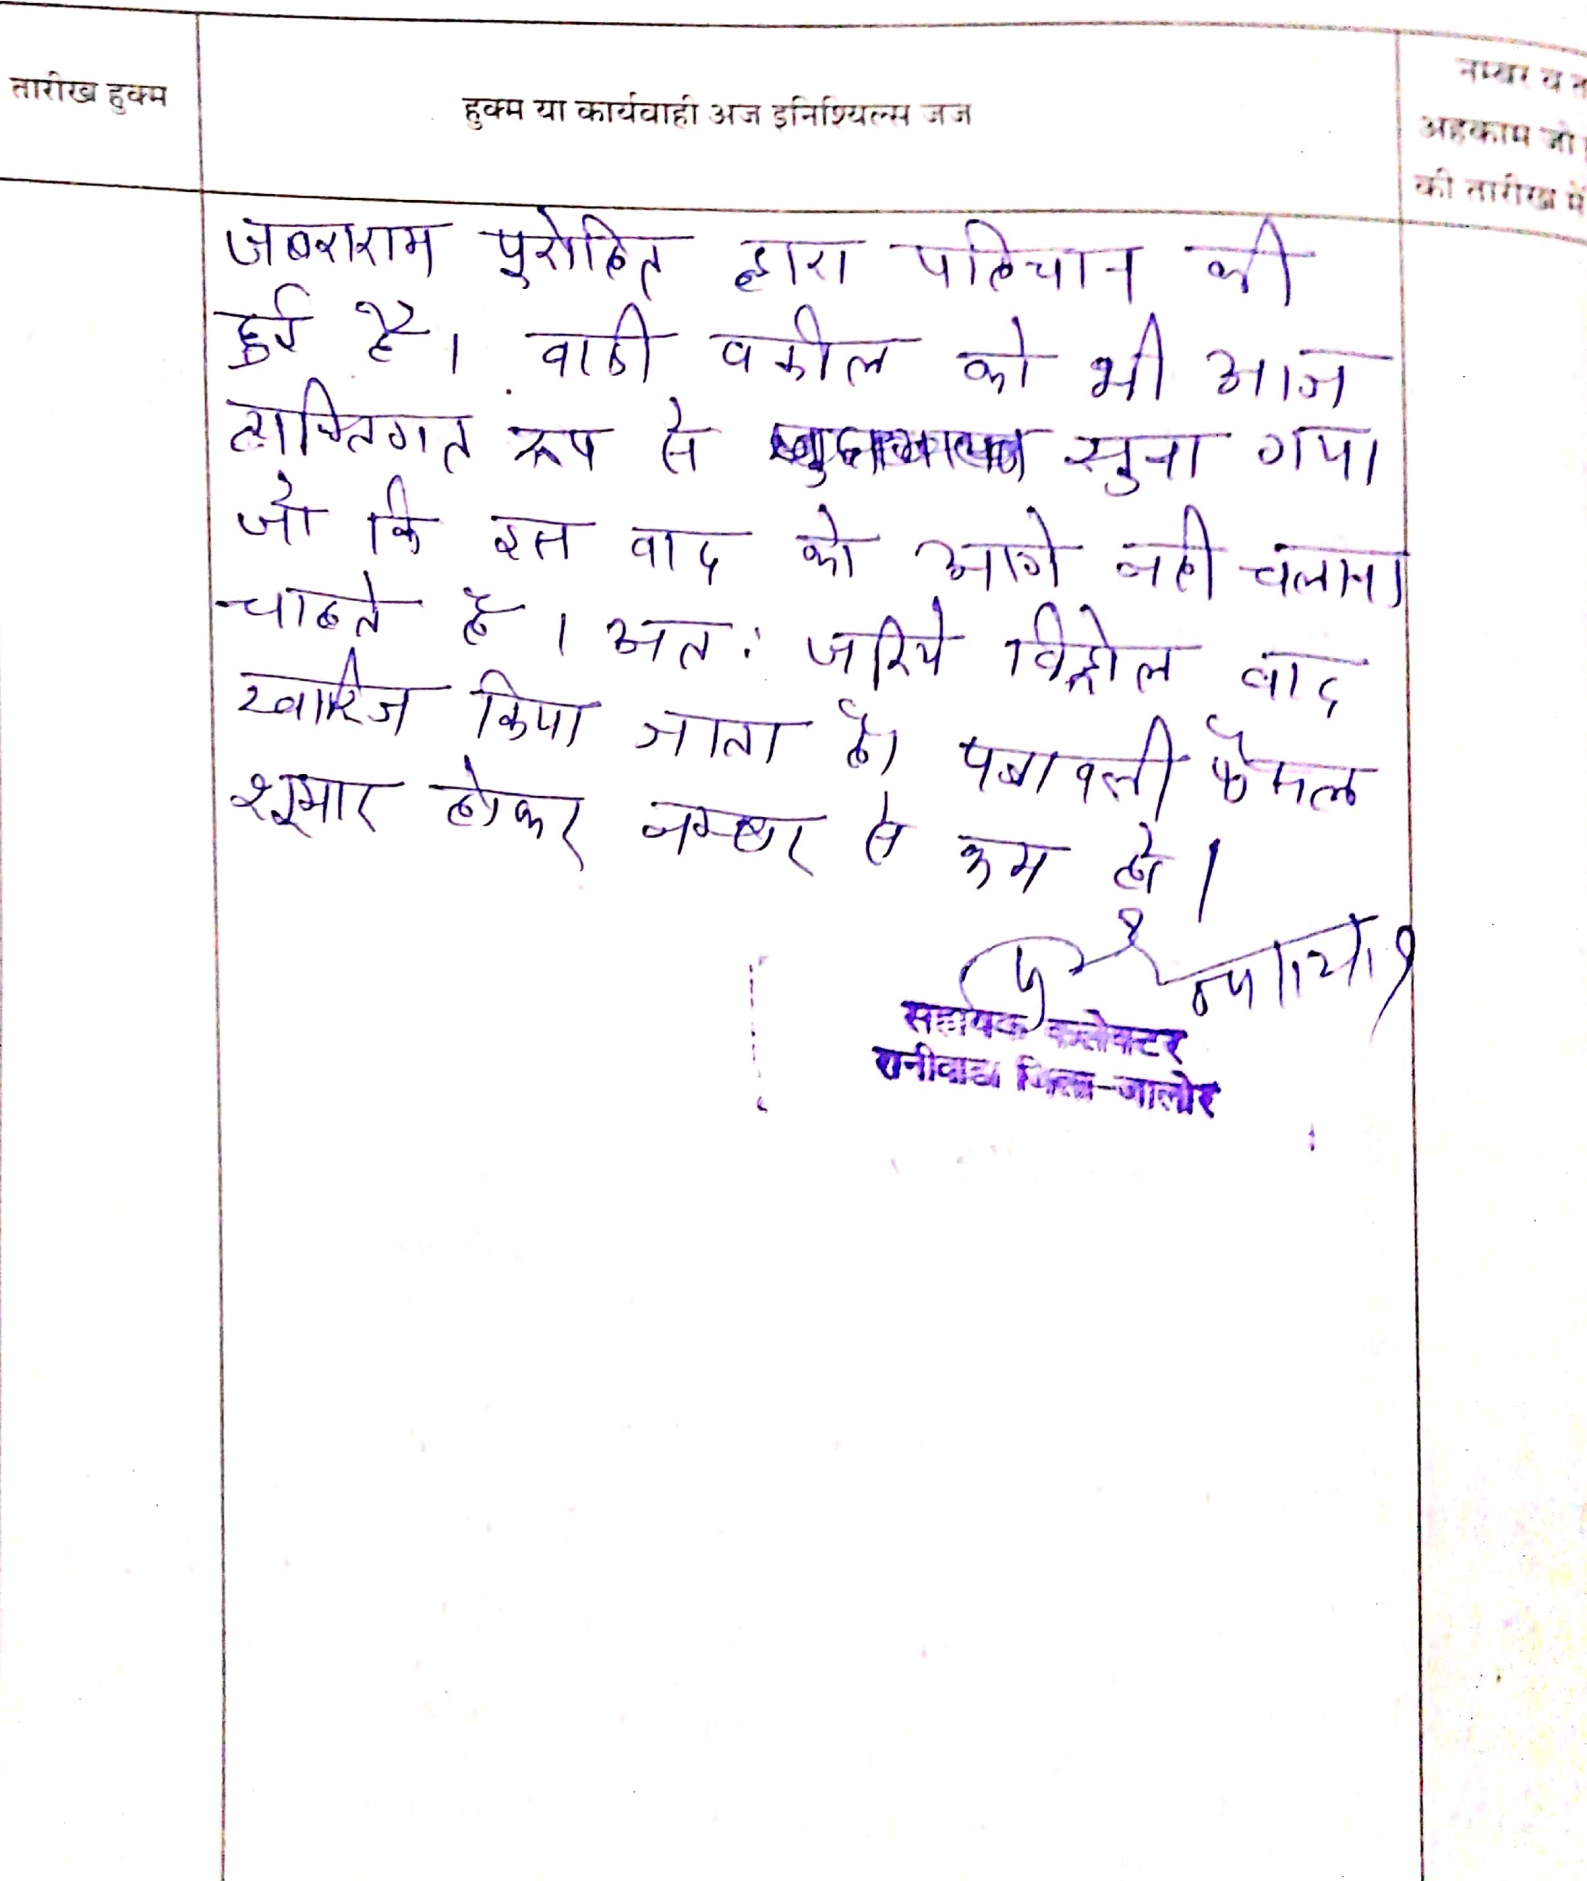 तारीख हुक्म
हुक्म या कार्यवाही अज इनिशियल्स जज
नम्बर व त
अहकाम जो
की तारीख में
जबराराम पुरोहित द्वारा पहिचान की
हुई है। वादी वकील को भी आज
व्यक्तिगत रूप से सुना गया
जो कि इस वाद को आगे नही चलाना
चाहते है। अतः जरिये विड्रोल वाद
खारिज किया जाता है। पत्रावली फैसल
शूमार होकर नम्बर से कम हो।
सहायक कलेक्टर
रानीवाडा जिला-जालोर